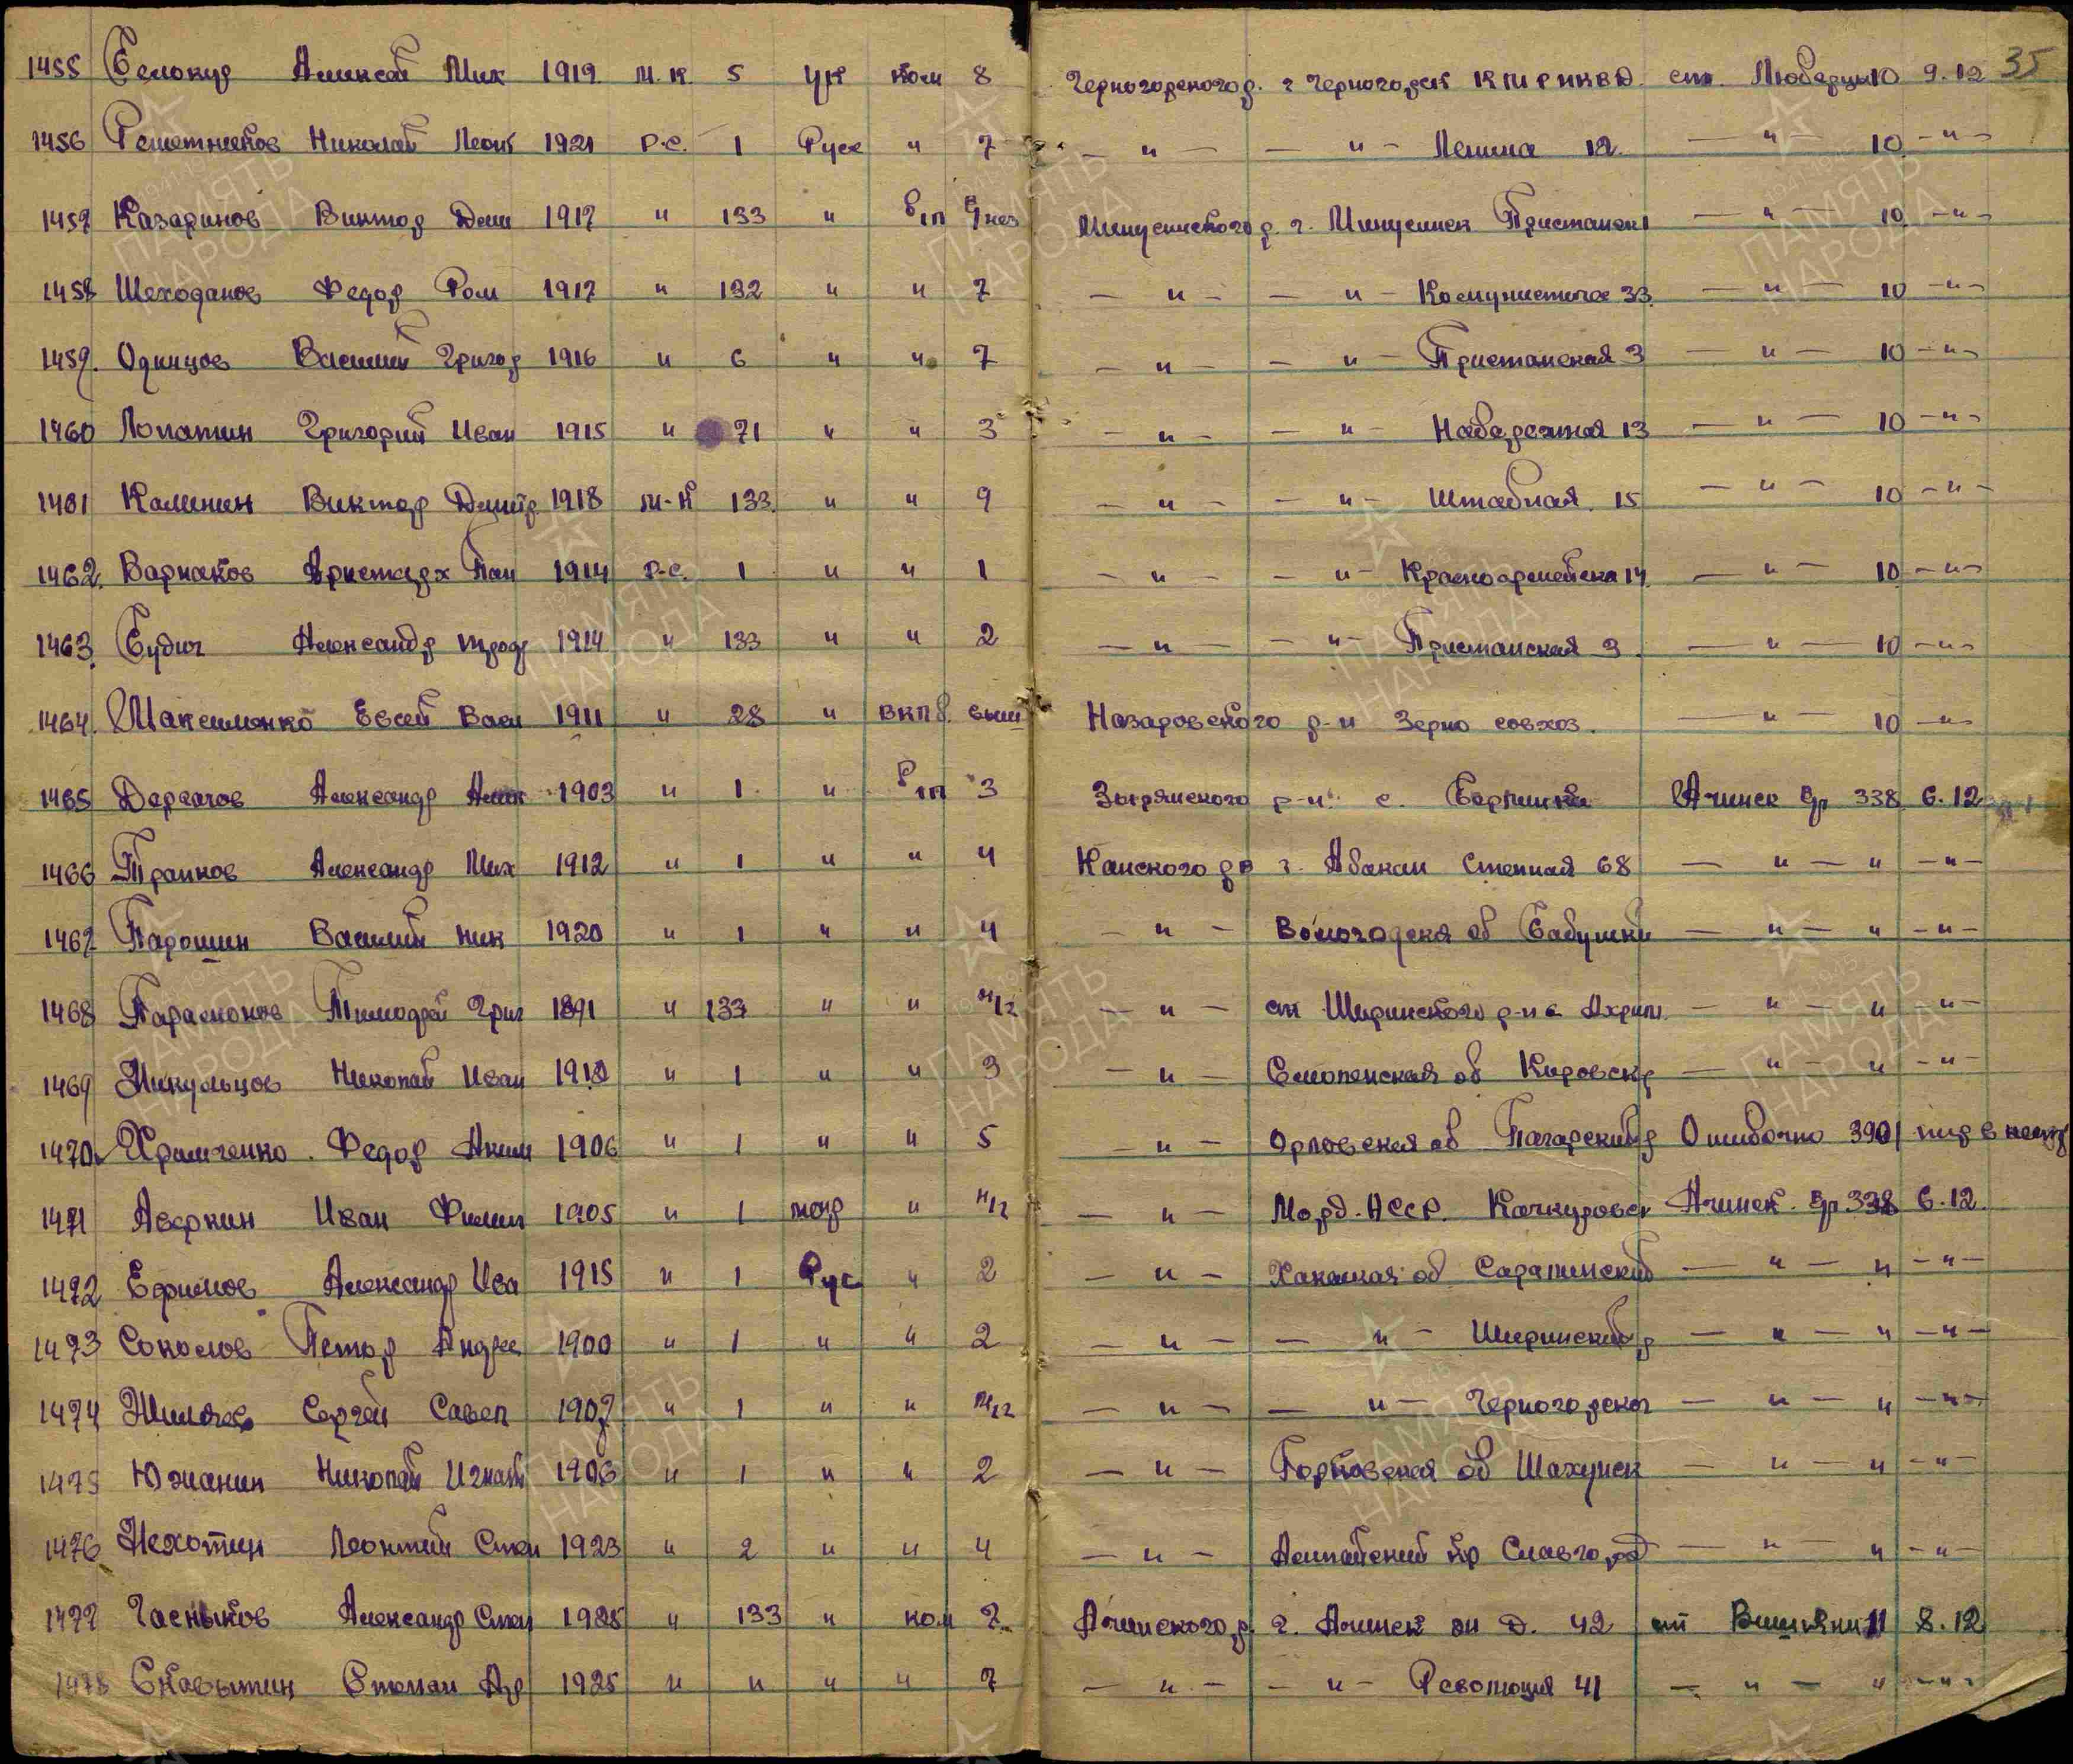 35
1455 Белокур Алексей Мих 1919 М.К. 5 Ук Ком 8 Черногорского р. г Черногорск КПРНКВД. ст. Люберцы 10 9.12
1456 Решетников Николай Леон 1921 р.с. 1 Русс " 7 — " — — " — Ленина 12. — " — 10 — " —
1457 Казаринов Виктор Дем 1917 " 133 " б/п 9 Минусинского р. г. Минусинск Пристанск 1 — " — 10 — " —
1458 Шеходанов Федор Ром 1917 " 132 " " 7 — " — — " — Комунистичес 33. — " — 10 — " —
1459. Одинцов Василий Григор 1916 " 6 " " 7 — " — — " — Пристанская 3 — " — 10 — " —
1460 Лопатин Григорий Иван 1915 " 71 " " 3 — " — — " — Набережная 13 — " — 10 — " —
1461 Калинин Виктор Дмитр 1918 М-К 133 " " 9 — " — — " — Штабная. 15 — " — 10 — " —
1462. Варнаков Аристарх Пан 1914 р-с. 1 " " 1 — " — — " — Красноармейская 14. — " — 10 — " —
1463. Будич Александр Троф 1914 " 133 " " 2 — " — — " — Пристанская 3. — " — 10 — " —
1464. Максименко Евсей Васи 1911 " 28 " ВКПб. выш Назаровского р-н Зерно совхоз. — " — 10 — " —
1465 Дергачов Александр 1903 " 1 " б/п 3 Зырянского р-н с. Ачинск Вр 338 6.12
1466 Трапков Александр Мих 1912 " 1 " " 4 Канского р г. Абакан Степная 68 — " — " — " —
1467 Парошин Василий Ник 1920 " 1 " " 4 — " — Вологодская об Бабушки — " — " — " —
1468 Парамонов Тимофей Григ 1891 " 133 " " н/г — " — ст Ширинского р-н с — " — " — " —
1469 Микульцов Николай Иван 1910 " 1 " " 3 — " — Смоленская об Кировск р — " — " — " —
1470. Храмченко. Федор Аким 1906 " 1 " " 5 — " — Орловская об Погарский р Ошибочно 3901
1471 Аверкин Иван Филип 1905 " 1 морд " н/г — " — Морд. АССР. Качкуровск Ачинск. Вр. 338 6.12.
1472 Ефимов Александр Ива 1915 " 1 Рус " 2 — " — Хакаская об Саралинский — " — " — " —
1473 Соколов Петор Андре 1900 " 1 " " 2 — " — — " — Ширинский р — " — " — " —
1474 Жиляев Сергей Савел 1907 " 1 " " н/г — " — — " — Черногорског — " — " — " —
1475 Южанин Николай Игнать 1906 " 1 " " 2 — " — Горьковская об Шахунск — " — " — " —
1476 Нехотин Леонтий Степ 1923 " 2 " " 4 — " — Алтайский кр Славгород — " — " — " —
1477 Часныков Александр Степ 1925 " 133 " ком 7 Ачинского р. г. Ачинск Д. 42 ст Вишняки 11 8.12
1478 Сковытин Степан Др 1925 " " " " 7 — " — — " — Революция 41 — " — " — " —
ПАМЯТЬ НАРОДА